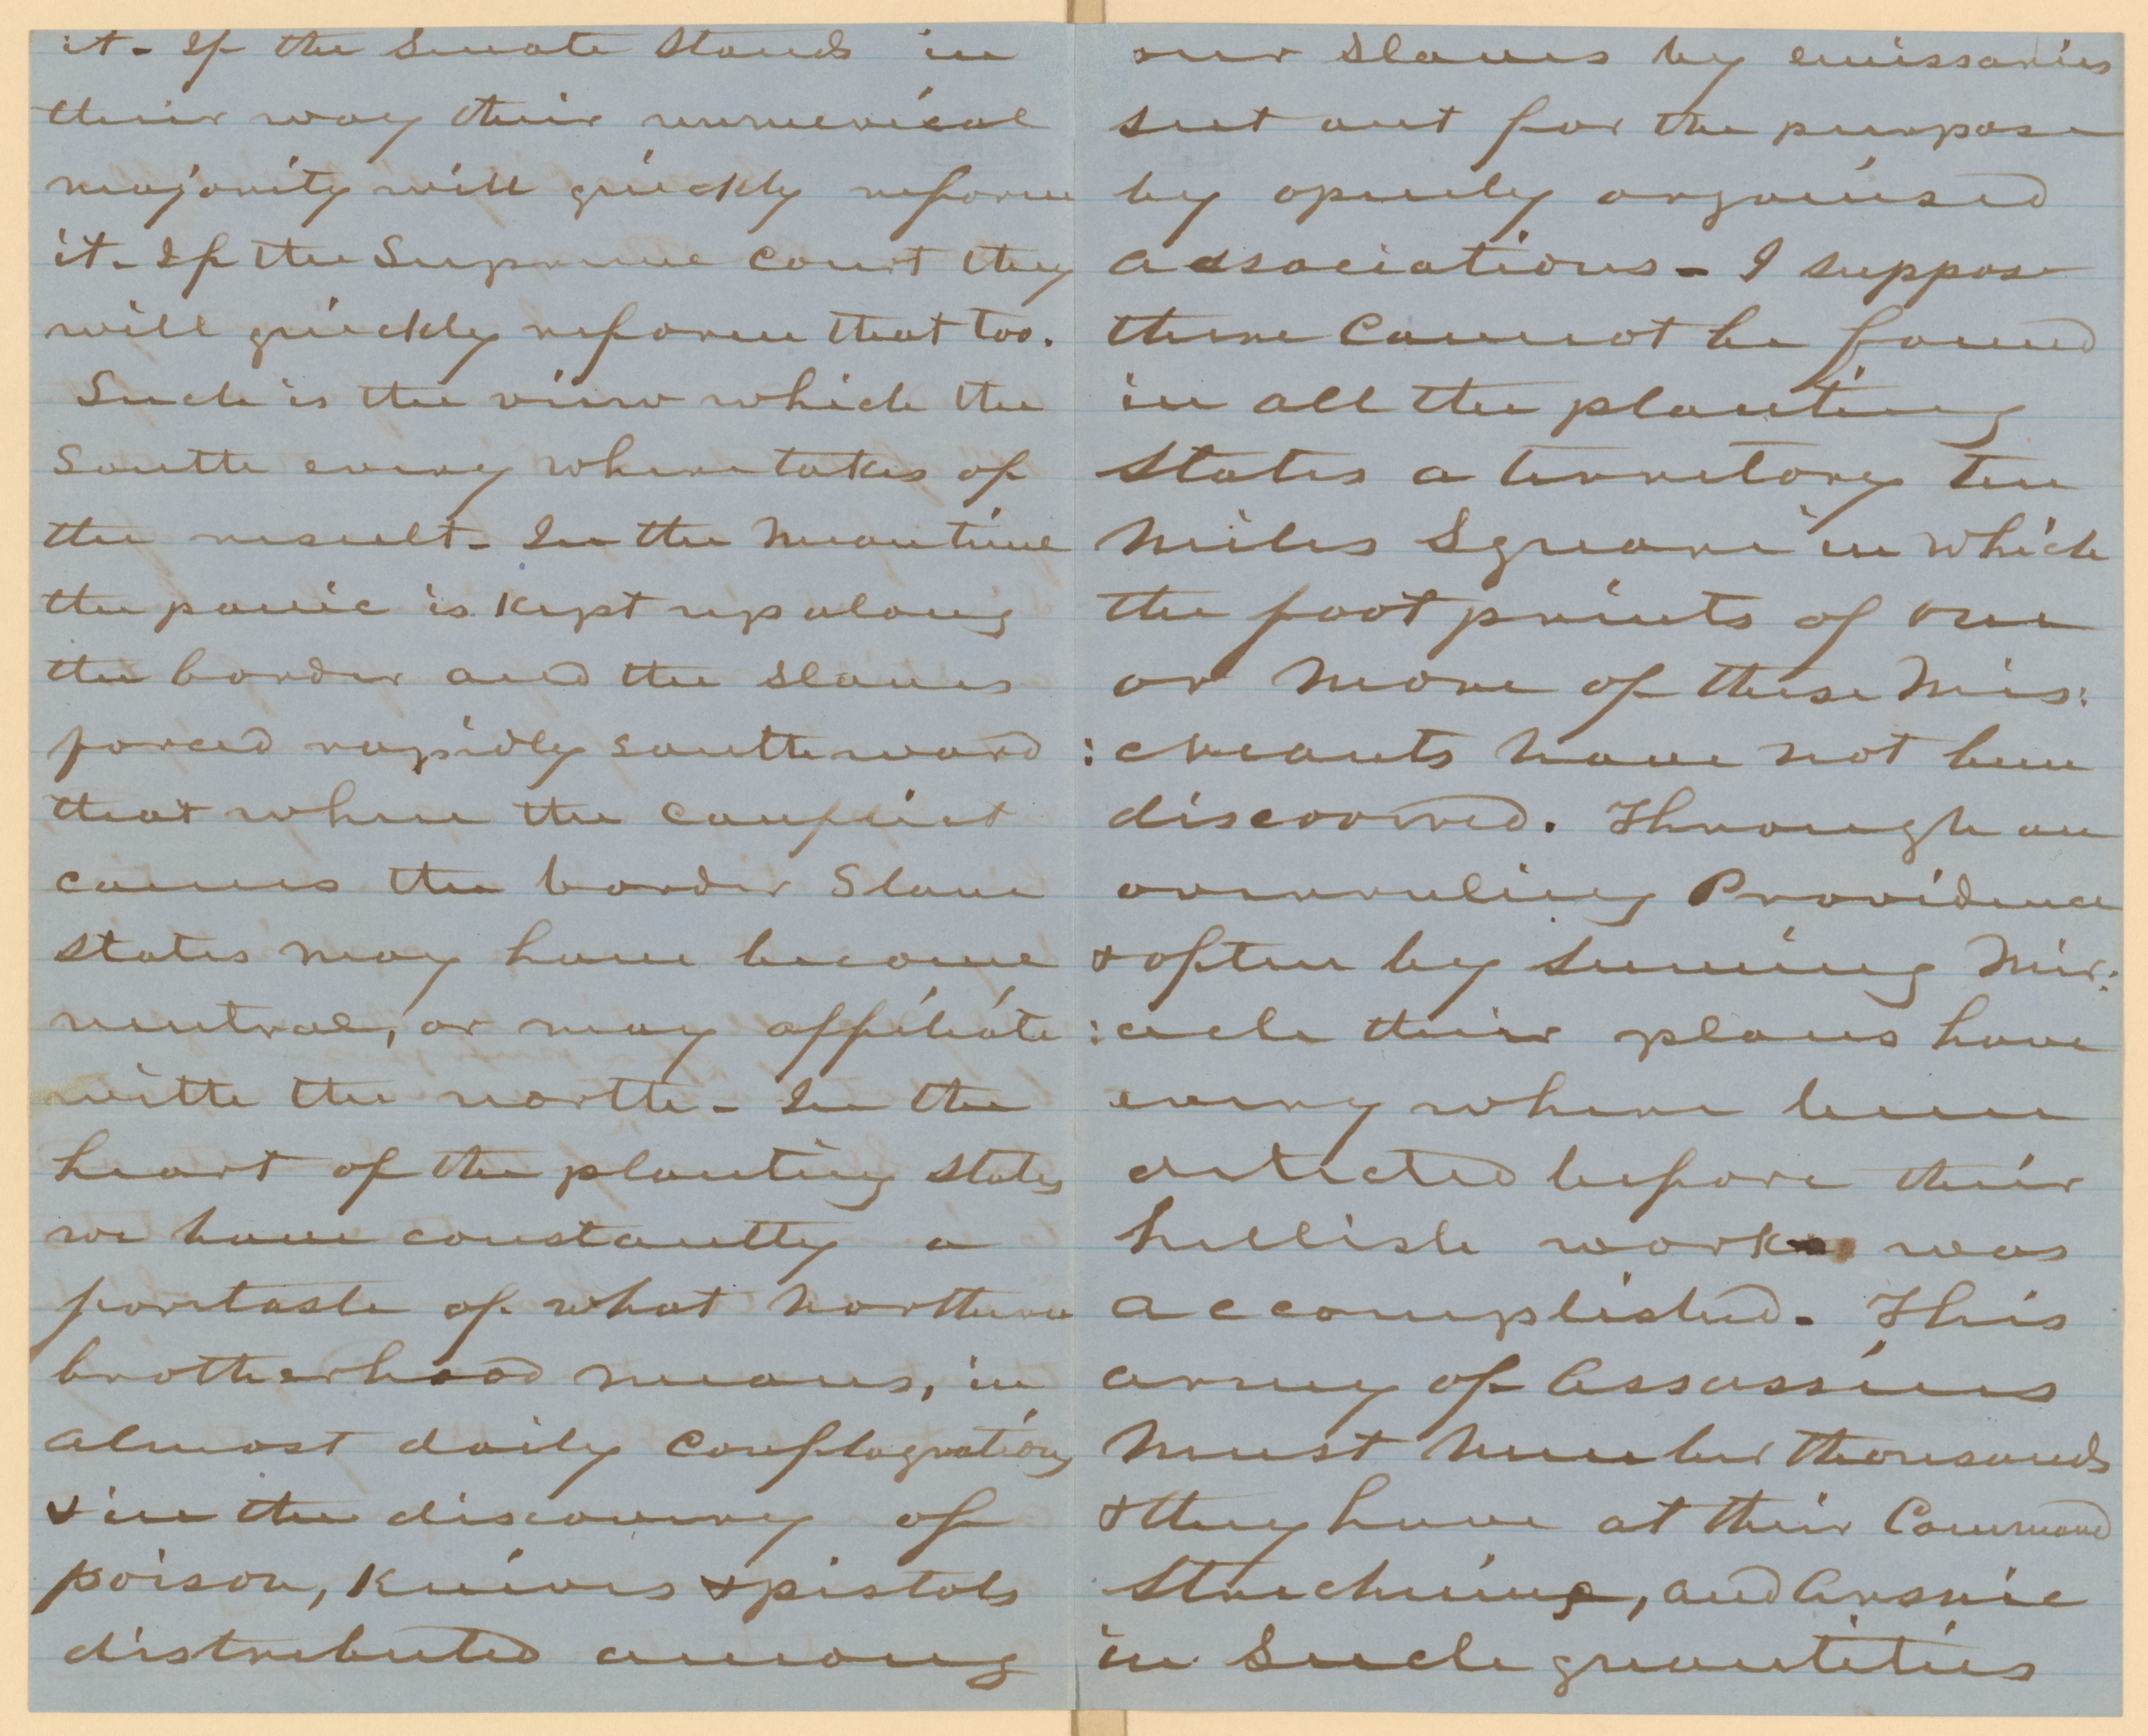 it - If the Senate stands in
their way their numerical
majority will quickly reform
it - If the Supreme Court they
will quickly reform that too.
Such is the view which the
South every where takes of
the result - In the meantime
the panic is kept up along
the border and the slaves
forced rapidly southward
that when the conflict
comes the border Slave
States may have become
neutral, or may affiliate
with the north - In the
heart of the planting states
we have constantly a
foretaste of what northern
brotherhood means, in
almost daily conflagrations
& in the discovery of
poison, knives & pistols
distributed among
our slaves by emissaries
sent out for the purpose
by openly organised
associations - I suppose
there cannot be found
in all the planting
States a territory ten
miles square in which
the foot prints of one
or more of these mis:
:creants have not been
discovered. Through an
overruling Providence
& often by seeming mir:
:acle their plans have
every where been
detected before their
hellish work was
accomplished. This
army of assassins
must number thousands
& they have at their command
Strechnine, and arsnic
in such quantities